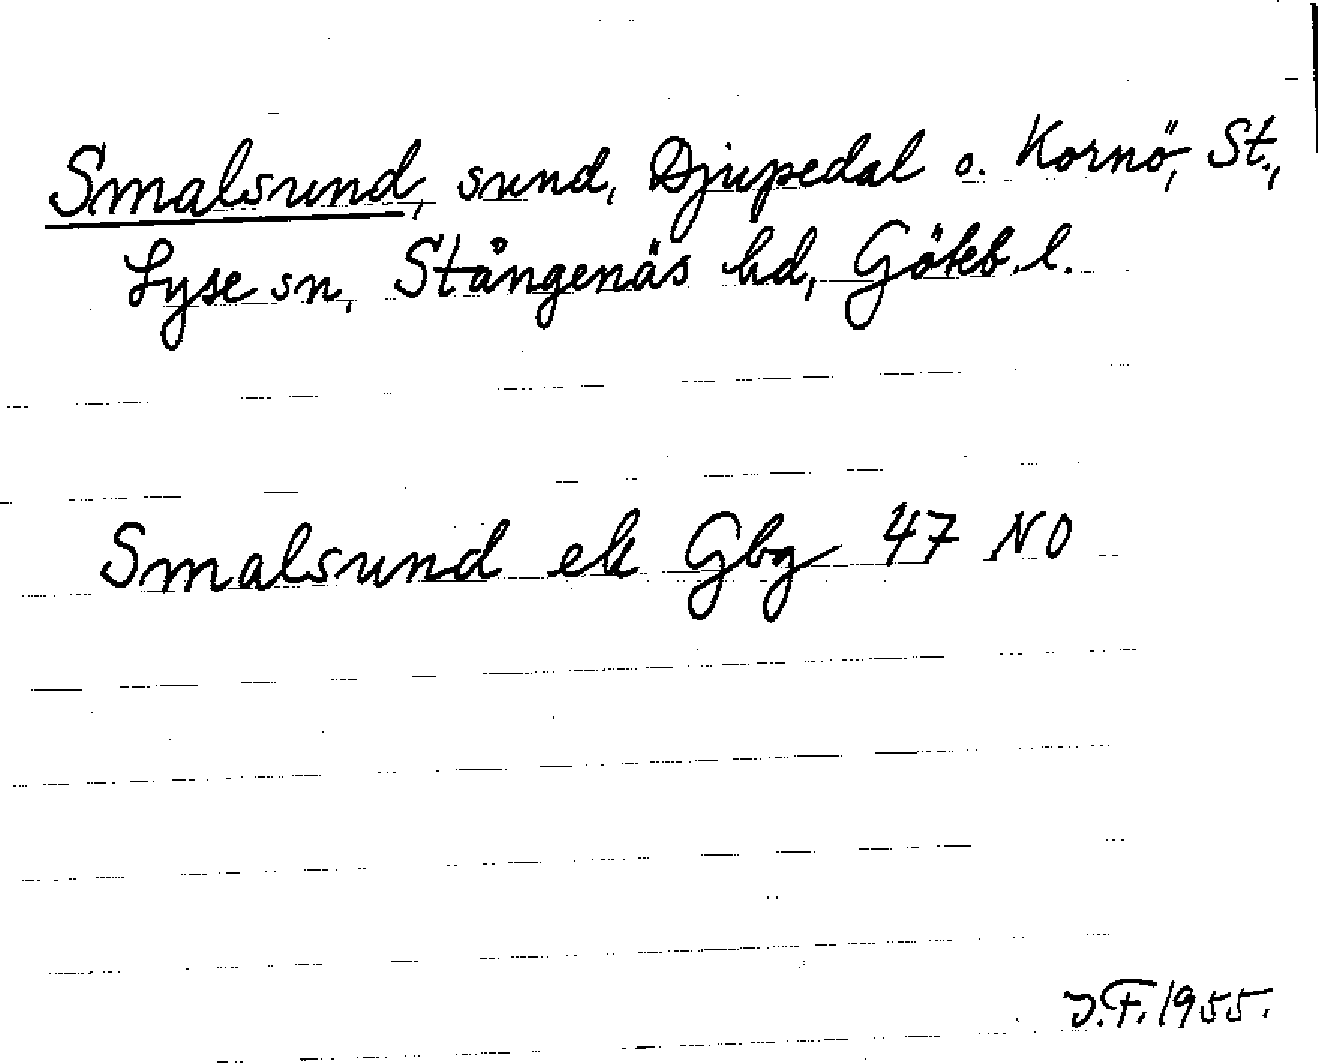 Smalsund, sund, Djupedal o. Kornö, St.,
Lyse sn, Stångenäs hd, Götebr. l.
Smalsund ek Gbg 47 NO
J.F. 1955.